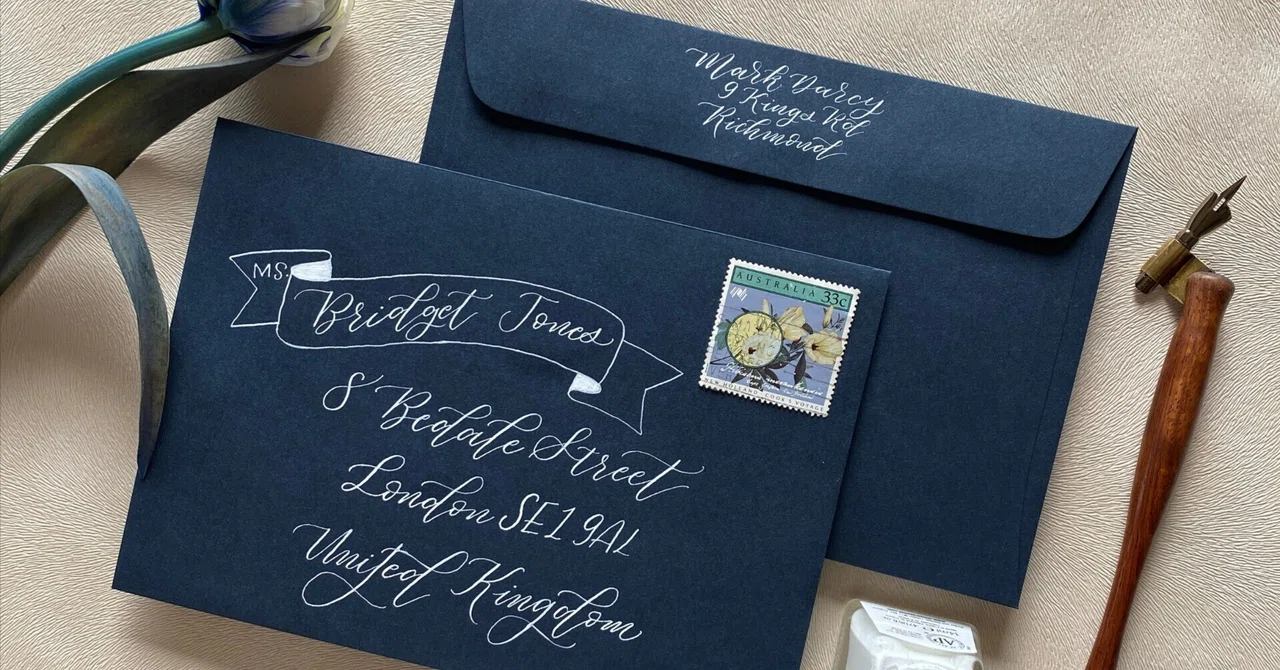 Mark Darcy
9 Kings Rd
Richmond
MS.
Bridget Jones
8 Bedale Street
London SE1 9AL
United Kingdom
AUSTRALIA 33c
NEW HOLLAND - COOK'S VOYAGE